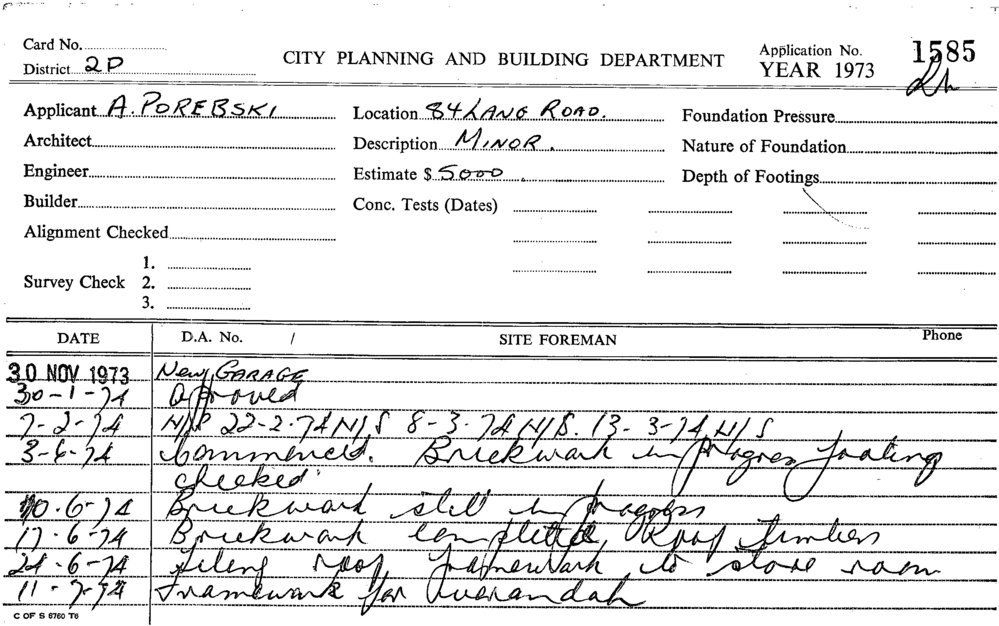 Card No.
District 2D
CITY PLANNING AND BUILDING DEPARTMENT
Application No. 1585
YEAR 1973
Applicant A. POREBSKI
Location 84 LANG ROAD.
Foundation Pressure
Architect
Description MINOR.
Nature of Foundation
Engineer
Estimate $ 5000
Depth of Footings
Builder
Conc. Tests (Dates)
Alignment Checked
Survey Check 1.
2.
3.
DATE D.A. No. / SITE FOREMAN Phone
30 NOV 1973 New GARAGE
30-1-74 Approved
7-2-74 N/S 22-2-74 N/S 8-3-74 N/S. 13-3-74 N/S
3-6-74 Commenced. Brickwork in progress footing
checked
10.6-74 Brickwork still in progress
17-6-74 Brickwork completed, Roof timbers
24-6-74 roof framework to store room
11-7-74 Framework for verandah
C OF S 6760 T6